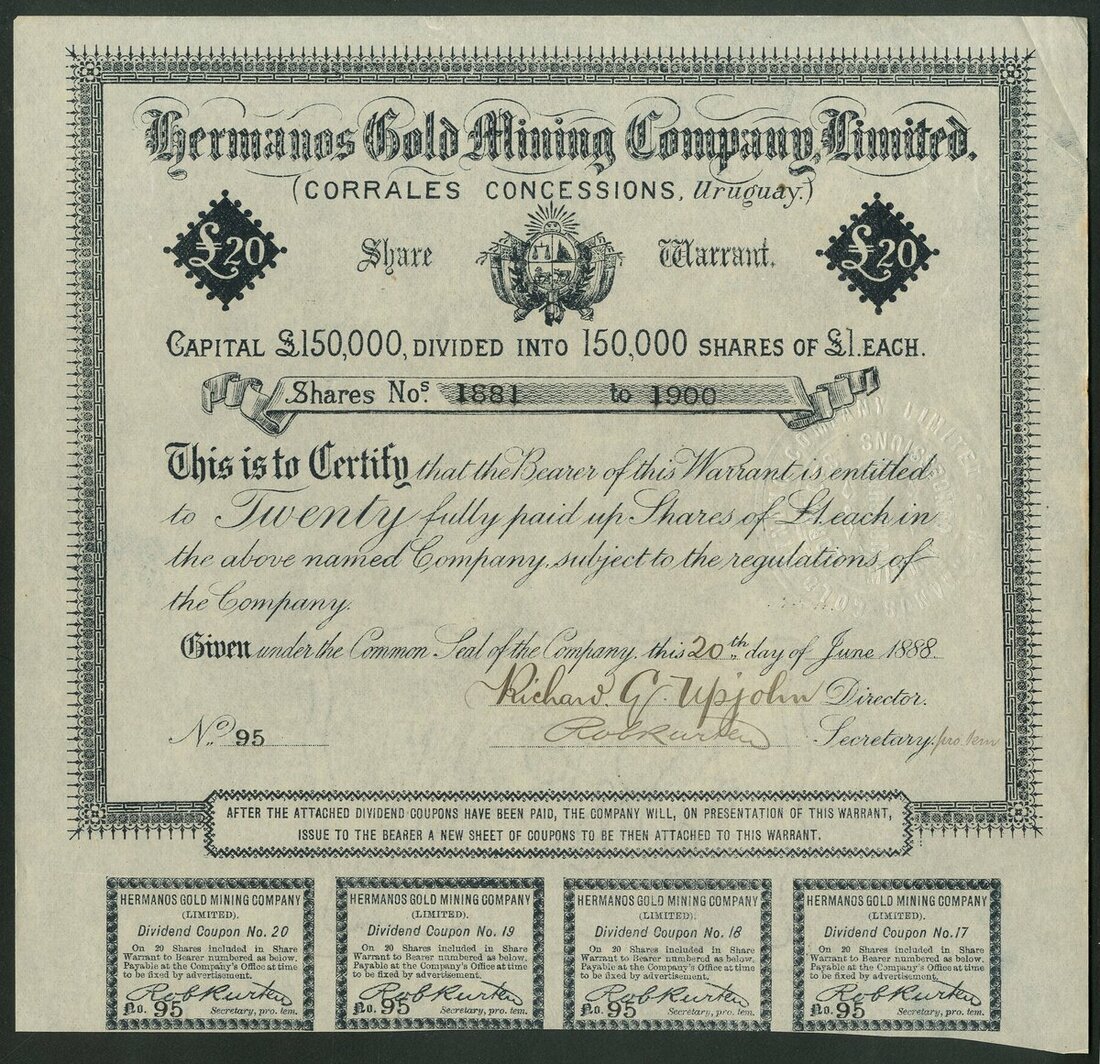 Hermanos Gold Mining Company, Limited.
(CORRALES CONCESSIONS, Uruguay.)
£20 Share Warrant. £20
CAPITAL £150,000, DIVIDED INTO 150,000 SHARES OF £1. EACH.
Shares Nos. 1881 to 1900
This is to Certify that the Bearer of this Warrant is entitled
to Twenty fully paid up Shares of £1 each in
the above named Company, subject to the regulations of
the Company.
Given under the Common Seal of the Company, this 20th day of June 1888.
Richard G. Upjohn Director.
No. 95 Secretary, pro. tem
AFTER THE ATTACHED DIVIDEND COUPONS HAVE BEEN PAID, THE COMPANY WILL, ON PRESENTATION OF THIS WARRANT,
ISSUE TO THE BEARER A NEW SHEET OF COUPONS TO BE THEN ATTACHED TO THIS WARRANT.
HERMANOS GOLD MINING COMPANY
(LIMITED).
Dividend Coupon No. 20
On 20 Shares included in Share
Warrant to Bearer numbered as below.
Payable at the Company's Office at time
to be fixed by advertisement.
No. 95 Secretary, pro. tem.
HERMANOS GOLD MINING COMPANY
(LIMITED).
Dividend Coupon No. 19
On 20 Shares included in Share
Warrant to Bearer numbered as below.
Payable at the Company's Office at time
to be fixed by advertisement.
No. 95 Secretary, pro. tem.
HERMANOS GOLD MINING COMPANY
(LIMITED).
Dividend Coupon No. 18
On 20 Shares included in Share
Warrant to Bearer numbered as below.
Payable at the Company's Office at time
to be fixed by advertisement.
No. 95 Secretary, pro. tem.
HERMANOS GOLD MINING COMPANY
(LIMITED).
Dividend Coupon No. 17
On 20 Shares included in Share
Warrant to Bearer numbered as below.
Payable at the Company's Office at time
to be fixed by advertisement.
No. 95 Secretary, pro. tem.